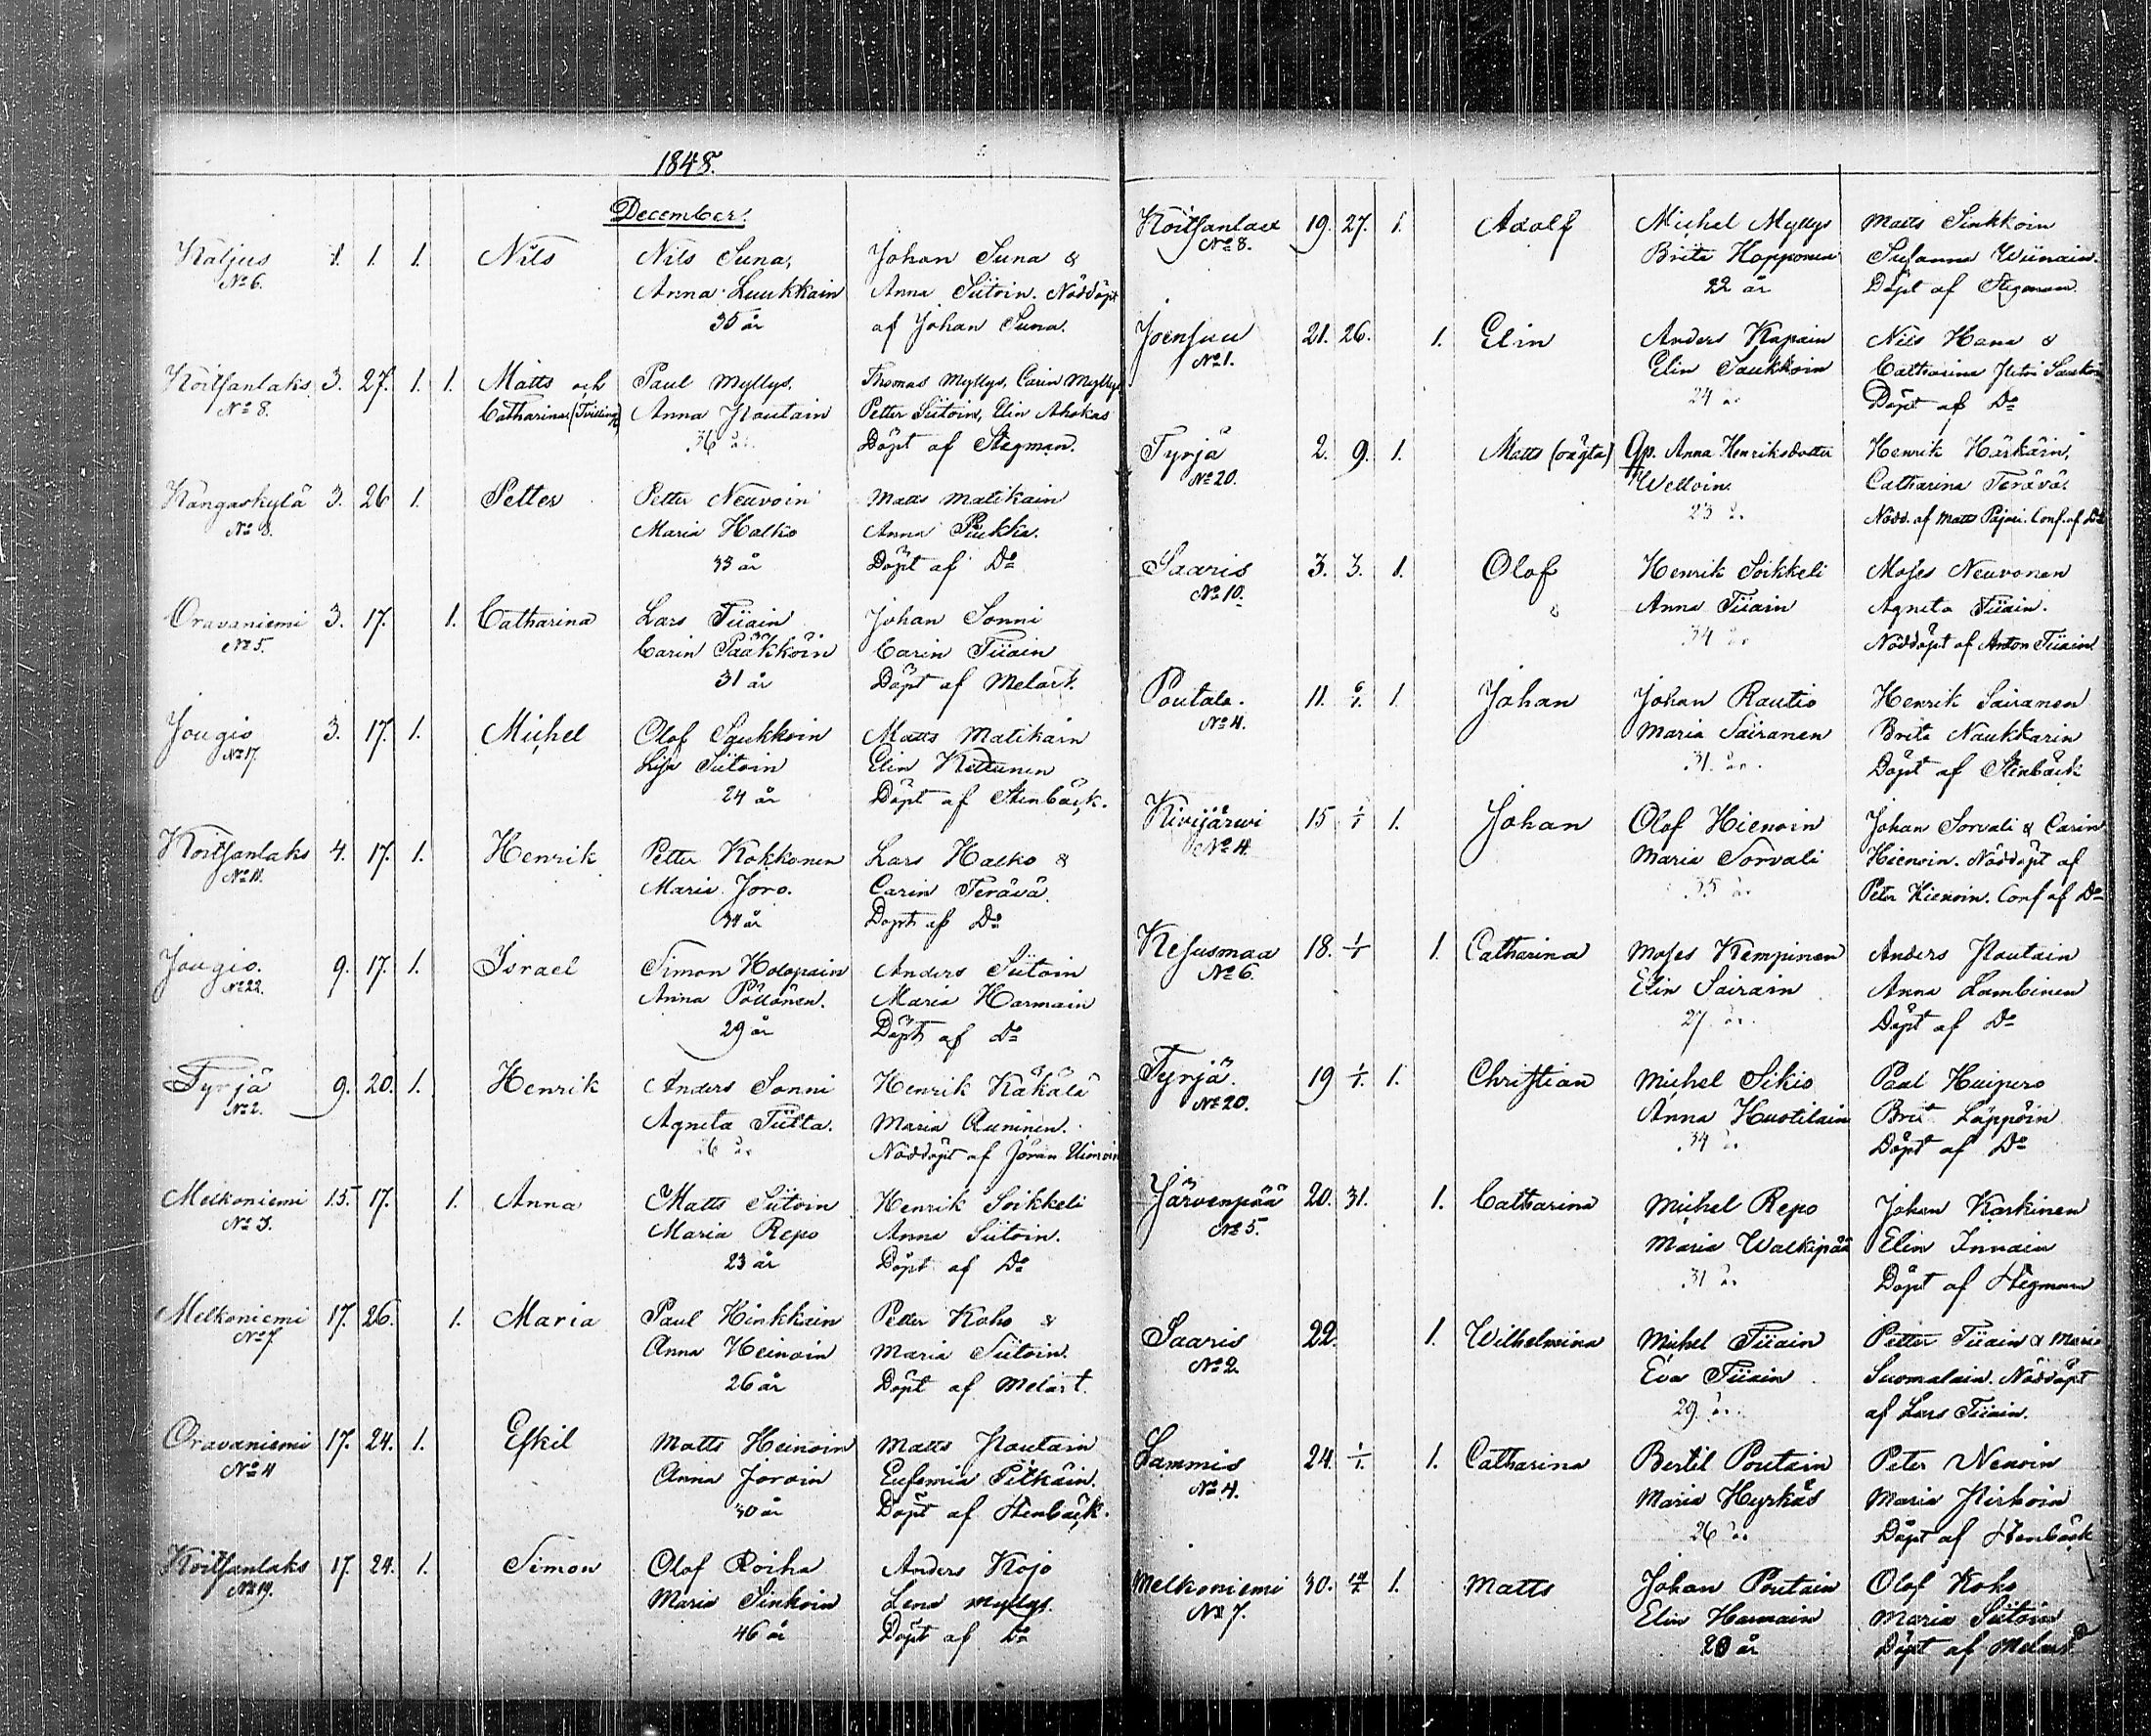 1848.
December.
Kaljus 1. 1. 1. Nils Nils Suna, Johan Suna &
No 6. Anna Luukkain Anna Siitoin. Nöddöpt
35 år af Johan Suna.
Koitsanlaks 3. 27. 1. 1. Matts och Paul Myllys, Thomas Myllys, Carin Myllys
No 8. Catharina (Tvilling) Anna Pautain Petter Siitoin, Elin Ahokas
36 år Döpt af Stegman.
Kangaskylä 3. 26 1. Petter Petter Neuvoin Matts Matikain
No 8. Maria Halko Anna Piukka.
33 år Döpt af Do
Oravaniemi 3. 17. 1. Catharina Lars Tiiain Johan Sonni
No 5. Carin Pääkköin Carin Tiiain
31 år Döpt af Melart.
Jougio 3. 17. 1. Michel Olof Saukkoin Matts Matikain
No 17. Lisa Siitoin Elin Kettunen
24 år Döpt af Stenbäck.
Koitsanlaks 4. 17. 1. Henrik Petter Kokkonen Lars Halko &
Maria Joro. Carin Terävä.
34 år Döpt af Do
Jougio. 9. 17. 1. Israel Simon Holopain Anders Siitoin
No 22. Anna Pöllänen. Maria Harmain
29 år Döpt af Do
Tyrjä 9. 20. 1. Henrik Anders Sonni Henrik Käkälä
No 2. Agneta Tiitta. Maria Auninen.
Nöddöpt af Jöran
Melkoniemi 15. 17. 1. Anna Matts Siitoin Henrik Soikkeli
No 3. Maria Repo Anna Siitoin.
23 år Döpt af Do
Melkoniemi 17. 26. 1. Maria Paul Hinkkain Petter Koho &
No 7 Anna Heinoin Maria Siitoin.
26 år Döpt af Melart.
Oravaniemi 17. 24. 1. Eskil Matts Heinoin Matts Pautain
No 4 Anna Joroin Eufemia Pitkäin.
30 år Döpt af Stenbäck.
Koitsanlaks 17. 24. 1. Simon Olof Roiha Anders Kojo
No 19. Maria Sinkoin Lena Myllys.
46 år Döpt af Do
Koitsanlax 19. 27. 1. Adolf Michel Myllys Matts Sinkkoin
No 8. Brita Hopponen Susanna Wiinain.
22 år Döpt af Stegman
Joensuu 21. 26. 1. Elin Anders Kapain Nils Hana &
No 1. Elin Saukkoin Catharina
24 år Döpt af Do
Tyrjä 2. 9. 1. Matts (oägta) Qp. Anna Henriksdotter Henrik Härkäin,
No 20. Weltoin. Catharina Terävä.
23 år Nödd. af Matts Pajari. Conf. af Do
Saaris 3. 3. 1. Olof Henrik Soikkeli Moses Neuvonen
No 10. Anna Tiiain Agneta Tiiain.
34 år Nöddöpt af Anton Tiiain
Poutala. 11. 6/1. 1. Johan Johan Rautio Henrik Sairanen
No 4. Maria Sairanen Brita Naukkarin
31. år. Döpt af Stenbäck
Kivijärwi 15 1/1 1. Johan Olof Hienoin Johan Sorvali & Carin
No 4. Maria Sorvali Hienoin. Nöddöpt af
35 år Peter Hienoin. Conf af Do
Kesusmaa 18. 1/1 1. Catharina Moses Kempinen Anders Pautain
No 6. Elin Sairain Anna Lambinen
27 år. Döpt af Do
Tyrjä. 19 1/1. 1. Christian Michel Sikio Paul Huipero
No 20. Anna Huotilain Brit Läppöin
34 år Döpt af Do
Järvenpää 20. 31. 1. Catharina Michel Repo Johan Karkinen
No 5. Maria Walkipää Elin Innain
31 år Döpt af Stegman
Saaris 22. 1. Wilhelmina Michel Tiiain Petter Tiiain & Maria
No 2 Eva Tiiain Suomalain. Nöddöpt
29. år. af Lars Tiiain.
Lammis 24. 1/1. 1. Catharina Bertil Poutain Peter Nenoin
No 4. Maria Hyrkäs Maria Hirkoin
26 år Döpt af Stenbäck
Melkoniemi 30. 1. Matts Johan Poutain Olof Koho
No 7. Elin Harmain Maria Siitoin
år Döpt af Melart